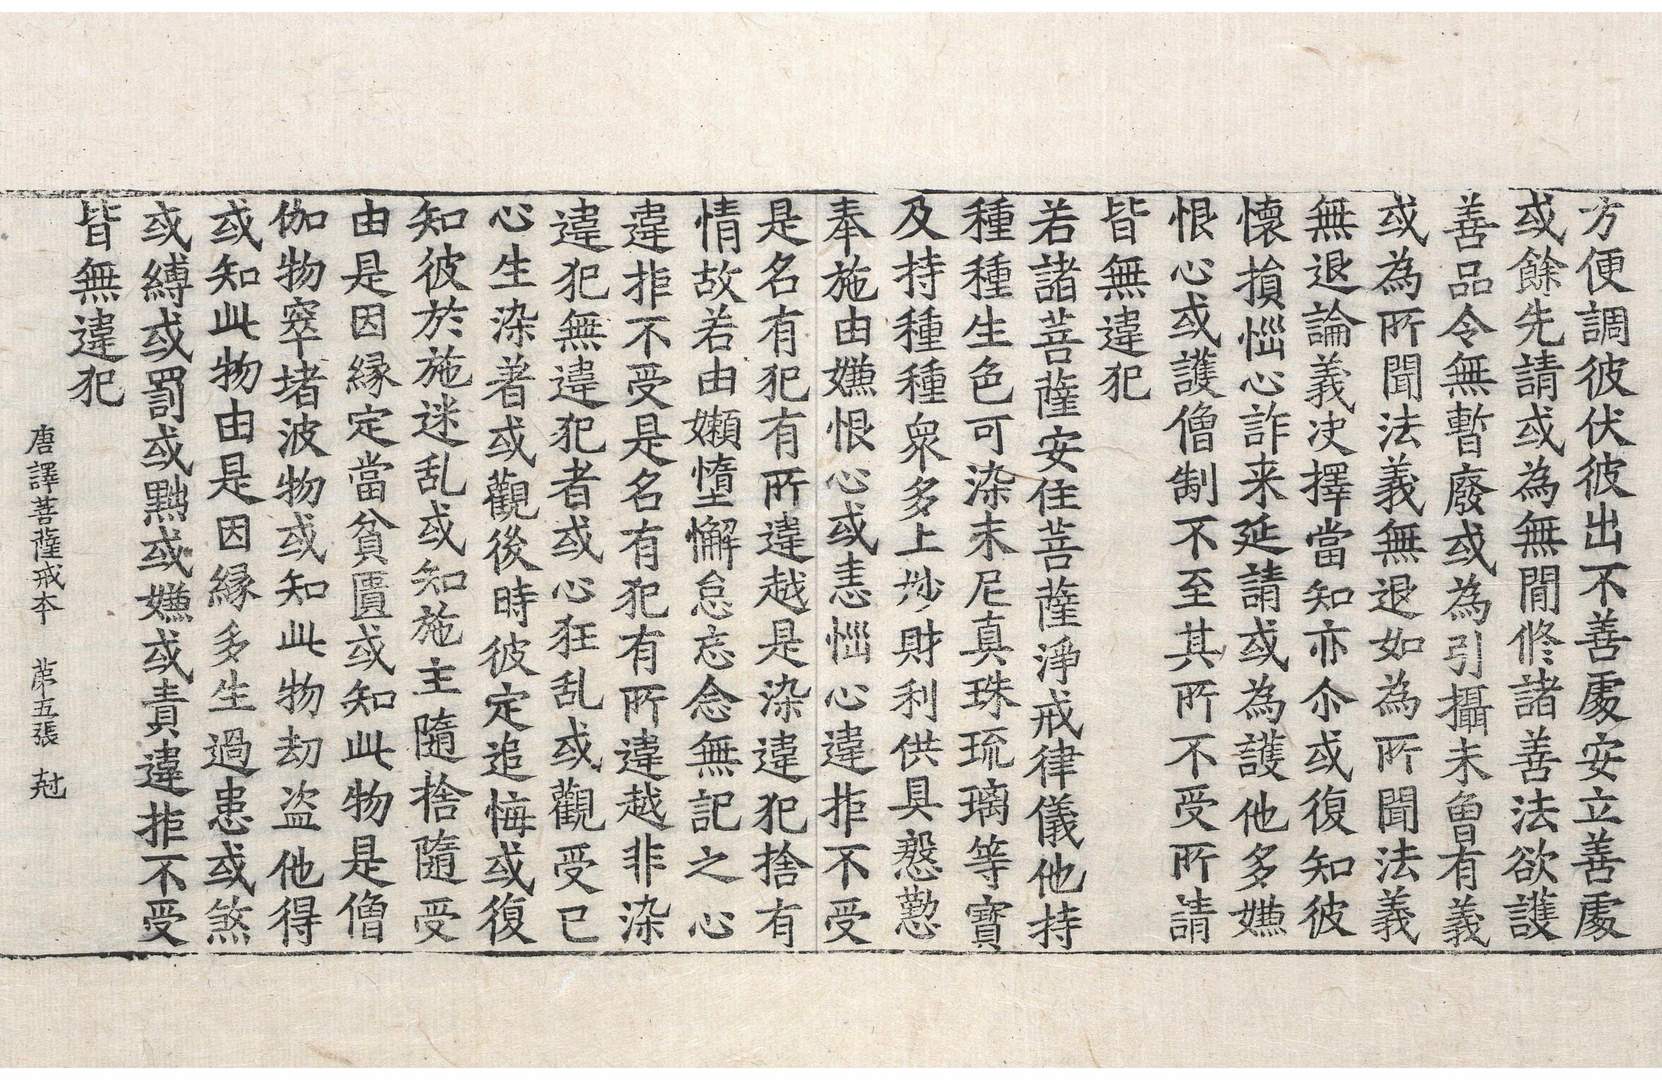 方便調彼伏彼出不善處安立善處
或餘先請或為無間修諸善法欲護
善品令無暫廢或為引攝未曾有義
或為所聞法義無退如為所聞法義
無退論義决擇當知亦尒或復知彼
懷損惱心詐来延請或為護他多嫌
恨心或護僧制不至其所不受所請
皆無違犯
若諸菩薩安住菩薩淨戒律儀他持
種種生色可染末尼真珠琉璃等寶
及持種種衆多上妙財利供具慇懃
奉施由嫌恨心或恚惱心違拒不受
是名有犯有所違越是染違犯捨有
情故若由嬾惰懈怠忘念無記之心
違拒不受是名有犯有所違越非染
違犯無違犯者或心狂乱或觀受已
心生染著或觀後時彼定追悔或復
知彼於施迷乱或知施主隨捨隨受
由是因縁定當貧匱或知此物是僧
伽物窣堵波物或知此物劫盗他得
或知此物由是因縁多生過患或煞
或縛或罰或黜或嫌或責違拒不受
皆無違犯
唐譯菩薩戒本　第五張　尅